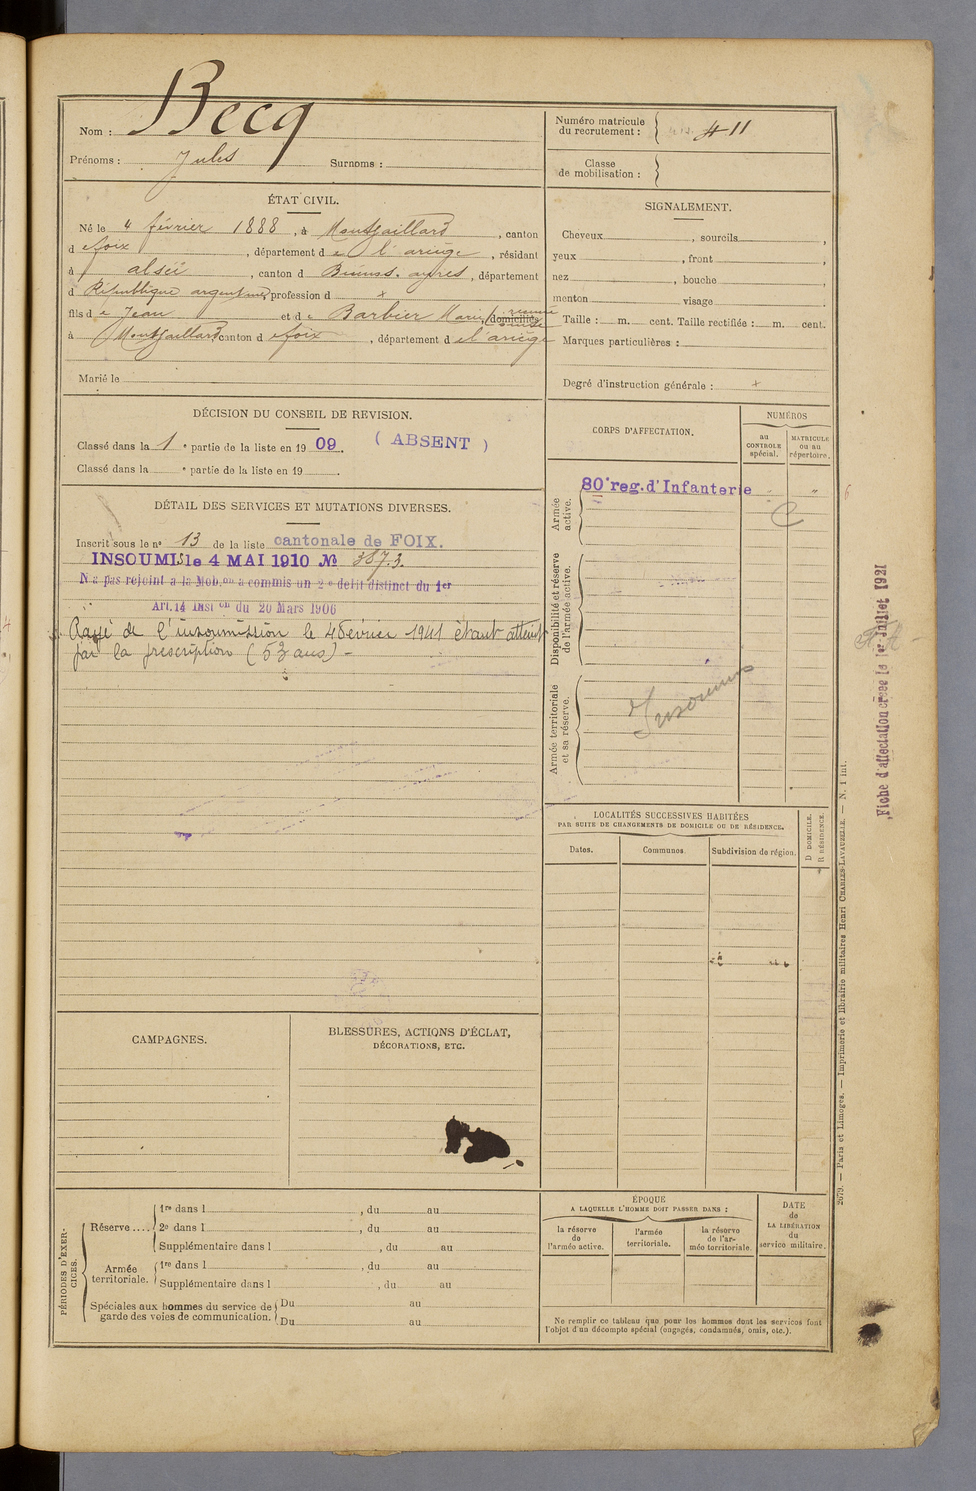 Nom : Becq
Prénoms : Jules Surnoms :
Numéro matricule
du recrutement : 411
Classe
de mobilisation :
ÉTAT CIVIL.
Né le 4 février 1888, à Montgaillard, canton
d e foix, département d e l'ariège, résidant
à alsii, canton d Buenos. ayres, département
d République argentine, profession d x
fils d e Jean et d e Barbier Marie, domiciliés
à Montgaillard canton d e foix, département d e l'ariège
Marié le
SIGNALEMENT.
Cheveux , sourcils ,
yeux , front ,
nez , bouche ,
menton visage
Taille : m. cent. Taille rectifiée : m. cent.
Marques particulières :
Degré d'instruction générale : x
DÉCISION DU CONSEIL DE REVISION.
Classé dans la 1 e partie de la liste en 1909. ( ABSENT )
Classé dans la e partie de la liste en 19 .
DÉTAIL DES SERVICES ET MUTATIONS DIVERSES.
Inscrit sous le n° 13 de la liste cantonale de FOIX.
INSOUMIS le 4 MAI 1910 No 387.3.
N'a pas rejoint à la Mob.on a commis un 2e délit distinct du 1er
Art.14 Inst on du 20 Mars 1906
Rayé de l'insoumission le 4 Février 1941 étant atteint
par la prescription (53 ans) -
CORPS D'AFFECTATION.
NUMÉROS
au
CONTROLE
spécial.
MATRICULE
ou au
répertoire.
Armée
active.
80e reg. d'Infanterie " "
Disponibilité et réserve
de l'armée active.
Armée territoriale
et sa réserve.
Insoumis
LOCALITÉS SUCCESSIVES HABITÉES
PAR SUITE DE CHANGEMENTS DE DOMICILE OU DE RÉSIDENCE.
Dates. Communes. Subdivision de région.
D DOMICILE.
R RÉSIDENCE.
CAMPAGNES.
BLESSURES, ACTIONS D'ÉCLAT,
DÉCORATIONS, ETC.
PÉRIODES D'EXER-
CICES.
Réserve ....
1re dans l , du au
2e dans l , du au
Supplémentaire dans l , du au
Armée
territoriale.
1re dans l , du au
Supplémentaire dans l , du au
Spéciales aux hommes du service de
garde des voies de communication.
Du au
Du au
ÉPOQUE
A LAQUELLE L'HOMME DOIT PASSER DANS :
la réserve
de
l'armée active.
l'armée
territoriale.
la réserve
de l'ar-
mée territoriale.
DATE
de
LA LIBÉRATION
du
service militaire.
Ne remplir ce tableau que pour les hommes dont les services font
l'objet d'un décompte spécial (engagés, condamnés, omis, etc.).
2679. — Paris et Limoges. — Imprimerie et librairie militaires Henri CHARLES-LAVAUZELLE. — N. 1 int.
Fiche d'affectation créée le 1er Juillet 1921